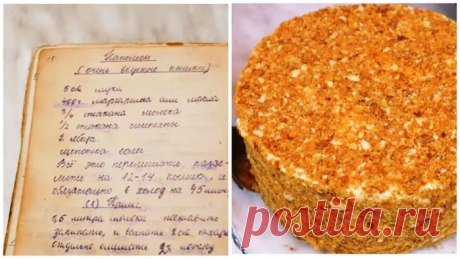 Наполеон
(очень вкусные пышки)
5 ст муки
400г. маргарина или масла
3/4 стакана молока
1/2 стакана сметаны
2 яйца.
щепотка соли
Всё это перемешать, разде-
лить на 12-14 и
обязательно в холод на 45 мин
(1) Крем:
литра молока поставить
закипать, и 2 ст. сахара
отдельно смешать
postila.ru